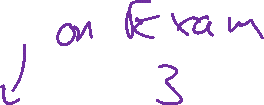 on Exam
3